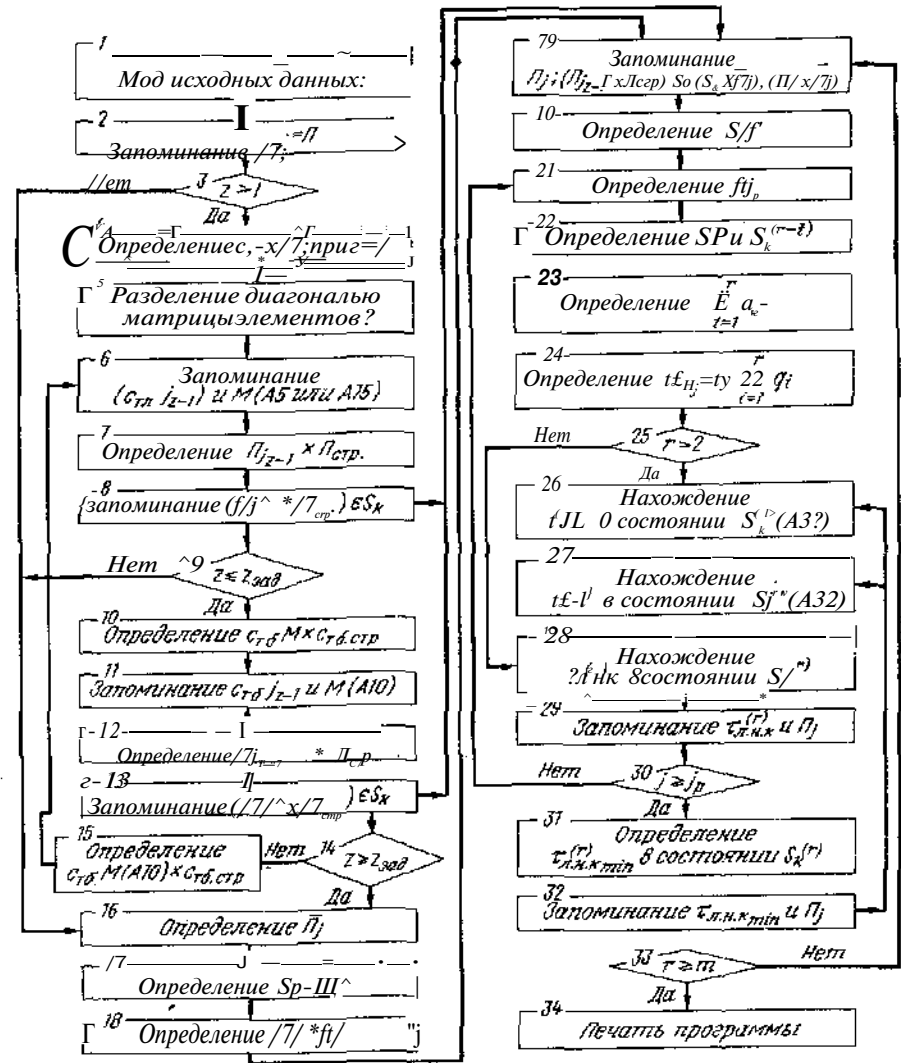 1
Мод исходных данных:
2
Запоминание /7;
=П
//ет
3 z > 1
Да
Определение с,-х/7; при г=/
5 Разделение диагональю
матрицы элементов?
6
Запоминание
(стл jz-1) и М(А5 или А15)
7
Определение Пjz-1 × Пстр.
8
{запоминание (f/j^ */7стр.) ∈Sк
Нет ^9 z ≤ zзад
Да
10
Определение стб М×стб.стр
11
Запоминание стб jz-1 и М(А10)
г-12
Определение/7j * Лср
г-13
Запоминание(/7/^х/7стр) ∈Sк
15
Определение
стб М(А10)×стб.стр
Нет 14 z ≥ zзад
Да
16
Определение Пj
/7
Определение Sp-Щ^
18 Определение /7/ *ft/ "j
79
Запоминание
Пj; (Пjz- Г хЛсгр) So (S& Xf7j), (П/ х/7j)
10
Определение S/f'
21
Определение ftjр
22 Определение SPи Sk(r-ℓ)
23
Определение Ё ae-
i=1
24
Определение t£Hj=ty 22 qi
i=1
Нет 25 r > 2
Да
26
Нахождение
t(JL 0 состоянии Sk(l>(А3?)
27
Нахождение
t£-l) в состоянии Sj"(А32)
28
Нахождение
?Лнк 8состоянии S/")
29
Запоминание τл.н.к(r) и Пj
Нет 30 j ≥ jp
Да
31
Определение
τл.н.к min(r) в состоянии Sk(r)
32
Запоминание τл.н.к min и Пj
33 r ≥ m Нет
Да
34
Печать программы